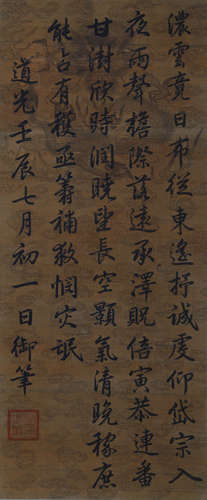 濃雲竟日布從東遙抒誠虔仰岱宗入
夜雨聲檐際落遠承澤貺倍寅恭連番
甘澍欣時潤曉望長空顥氣清晚稼庶
能占有穫亟籌補救憫災氓
道光壬辰七月初一日御筆